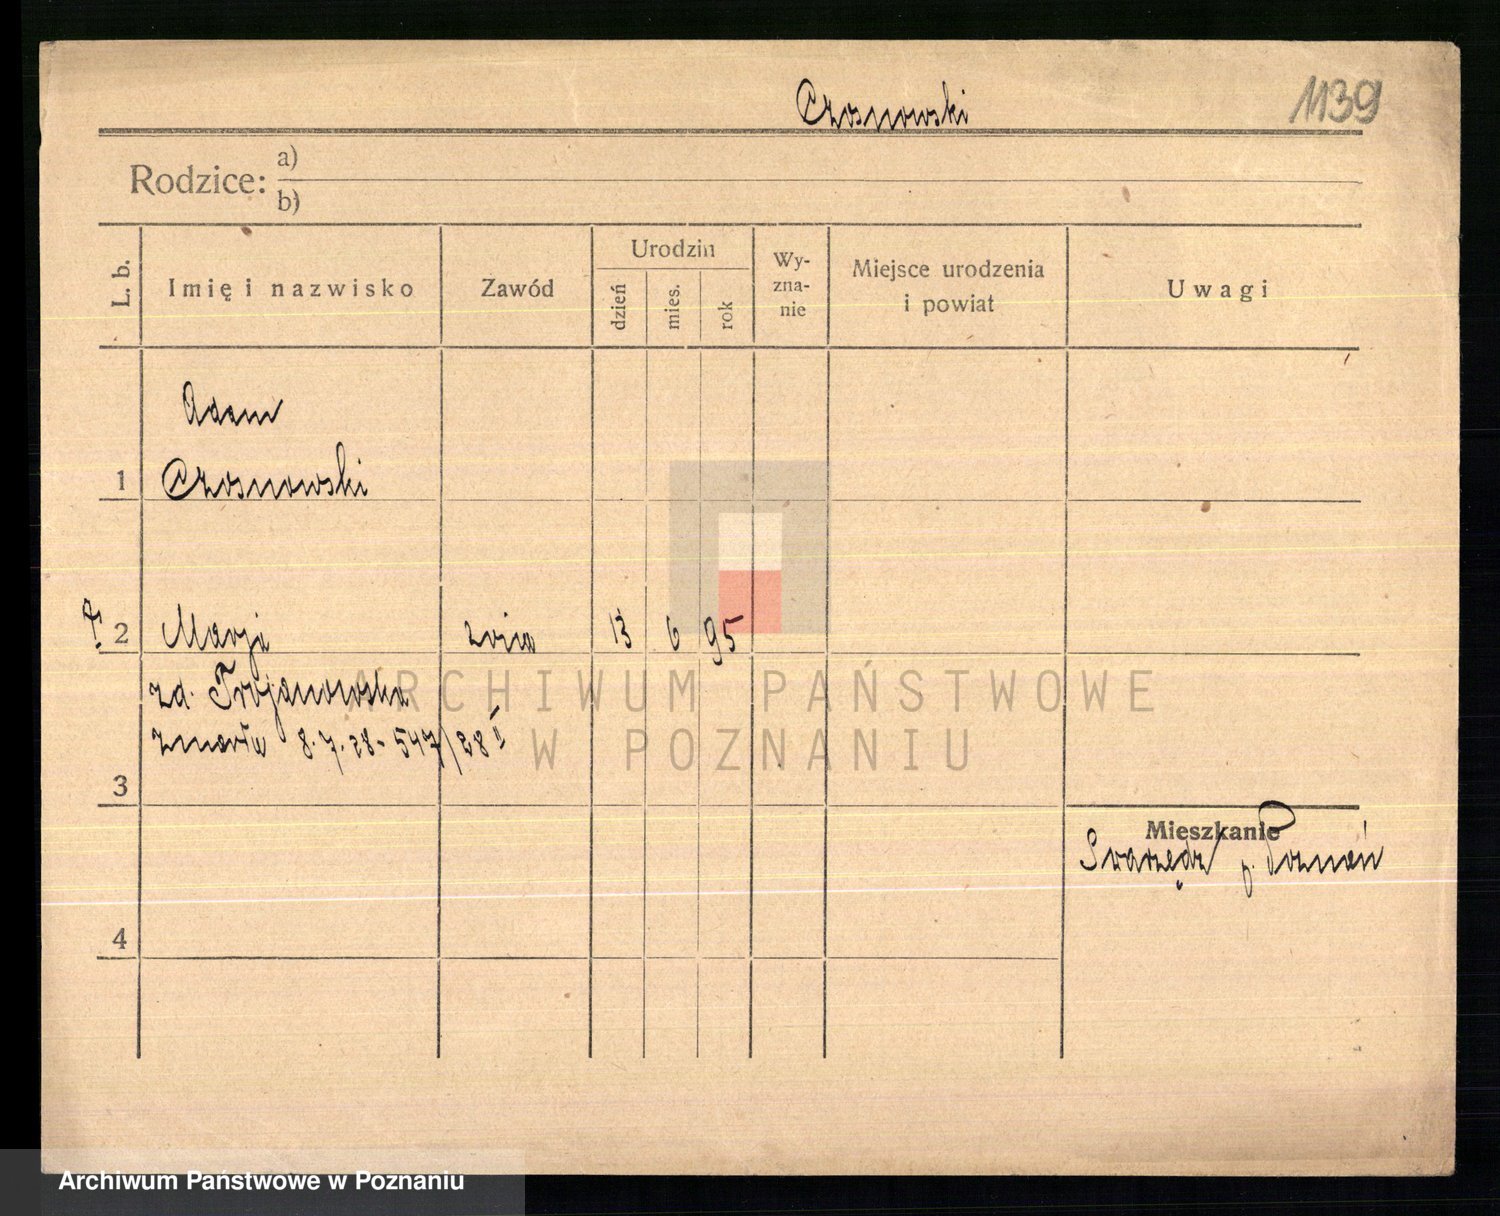 Czosnowski
1139
Rodzice:
a)
b)
L. b.
Imię i nazwisko
Zawód
Urodzin
dzień
mies.
rok
Wy-
zna-
nie
Miejsce urodzenia
i powiat
Uwagi
Adam
1 Czosnowski
2 Marja 13 6 95
zd. Trojanowska
zmarła 8.7.28 - 547/28
3
Mieszkanie
Swarzędz p. Poznań
4
ARCHIWUM PAŃSTWOWE
W POZNANIU
Archiwum Państwowe w Poznaniu